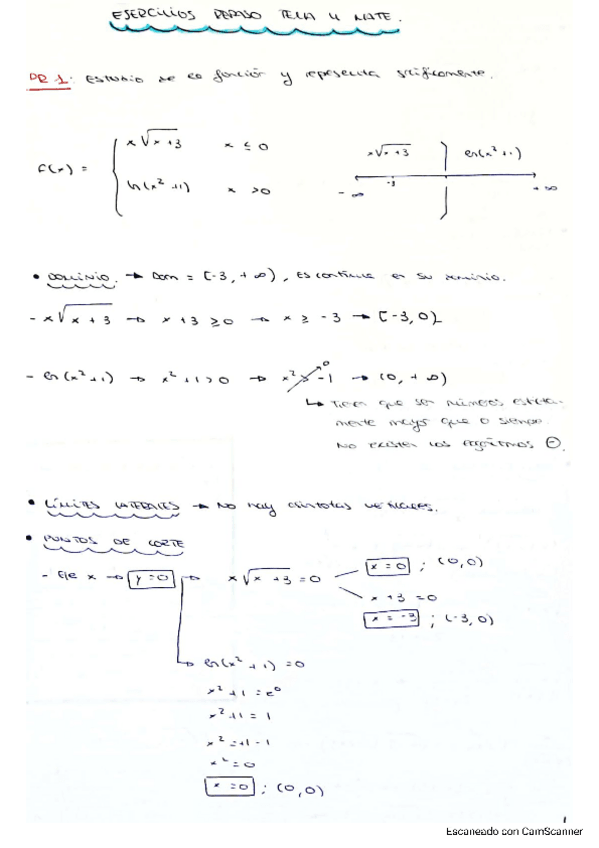 EJERCICIOS REPASO TEMA 4 MATE.
PR 1: ESTUDIO DE LA función y representa gráficamente.
f(x) =
x√x+3 x ≤ 0
ln(x²+1) x > 0
x√x+3 ln(x²+1)
-∞ -3 +∞
• DOMINIO. → Dom = [-3, +∞), ES continua en su dominio.
- x√x+3 → x+3 ≥ 0 → x ≥ -3 → [-3, 0]
- ln(x²+1) → x²+1 > 0 → x² > -1 → (0, +∞)
↳ Tienen que ser números estricta-
mente mayor que 0 siempre.
No existen los logaritmos ⊖.
• LÍMITES LATERALES → No hay asíntotas verticales.
• PUNTOS DE CORTE
- Eje x → y=0 → x√x+3 = 0
x = 0 ; (0,0)
x+3 = 0
x = -3 ; (-3,0)
ln(x²+1) = 0
x²+1 = e⁰
x²+1 = 1
x² = +1-1
x² = 0
x = 0 ; (0,0)
1
Escaneado con CamScanner